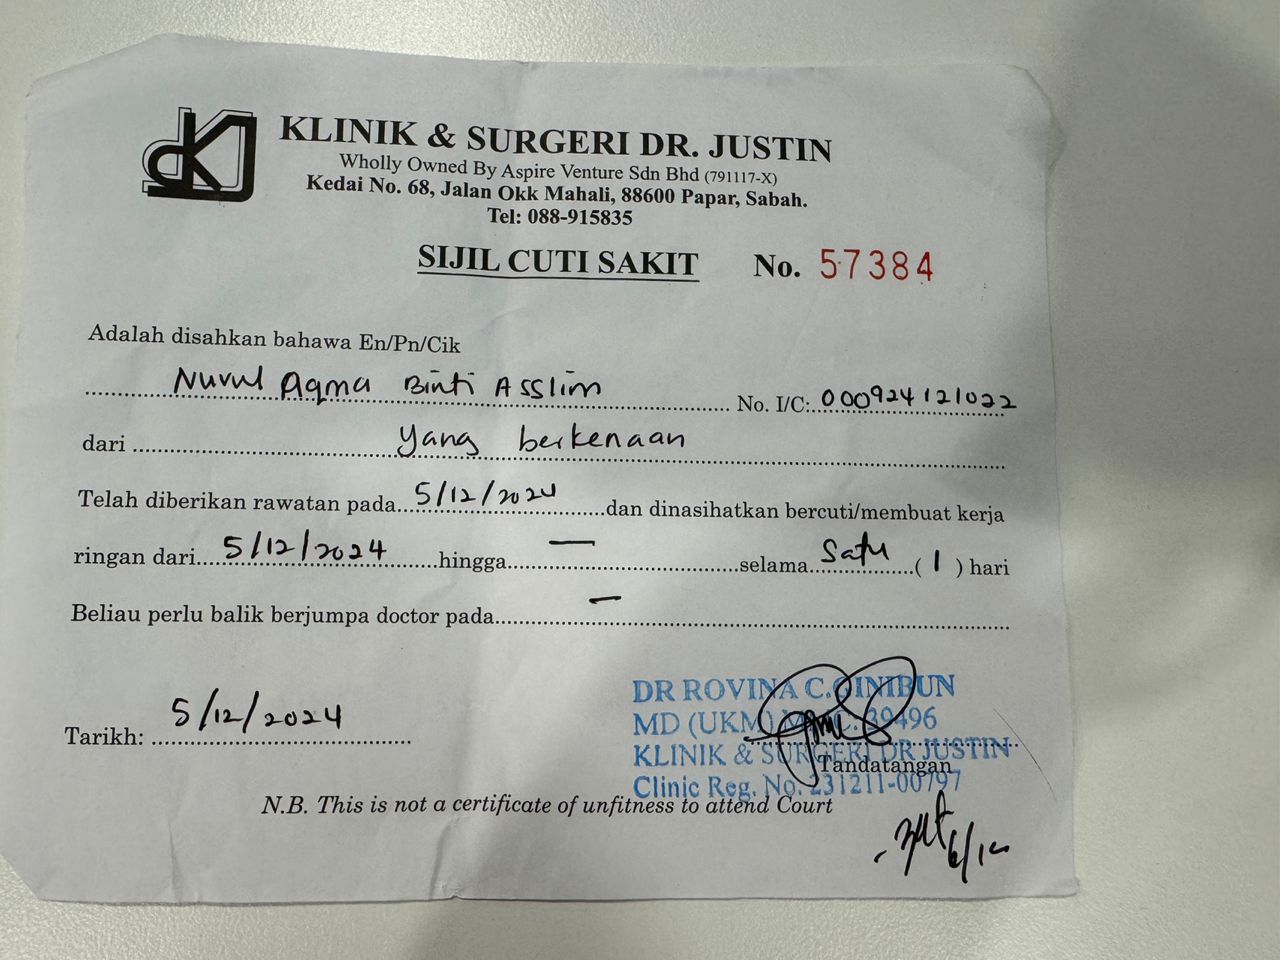 KLINIK & SURGERI DR. JUSTIN
Wholly Owned By Aspire Venture Sdn Bhd (791117-X)
Kedai No. 68, Jalan Okk Mahali, 88600 Papar, Sabah.
Tel: 088-915835
SIJIL CUTI SAKIT No. 57384
Adalah disahkan bahawa En/Pn/Cik
Nurul Aqma Binti Asslim No. I/C: 000924121022
dari yang berkenaan
Telah diberikan rawatan pada 5/12/2024 dan dinasihatkan bercuti/membuat kerja
ringan dari 5/12/2024 hingga — selama satu ( 1 ) hari
Beliau perlu balik berjumpa doctor pada —
DR ROVINA C. GINIBUN
MD (UKM) MMC: 39496
Tarikh: 5/12/2024
KLINIK & SURGERI DR JUSTIN
Tandatangan
Clinic Reg. No. 231211-00797
N.B. This is not a certificate of unfitness to attend Court
6/12